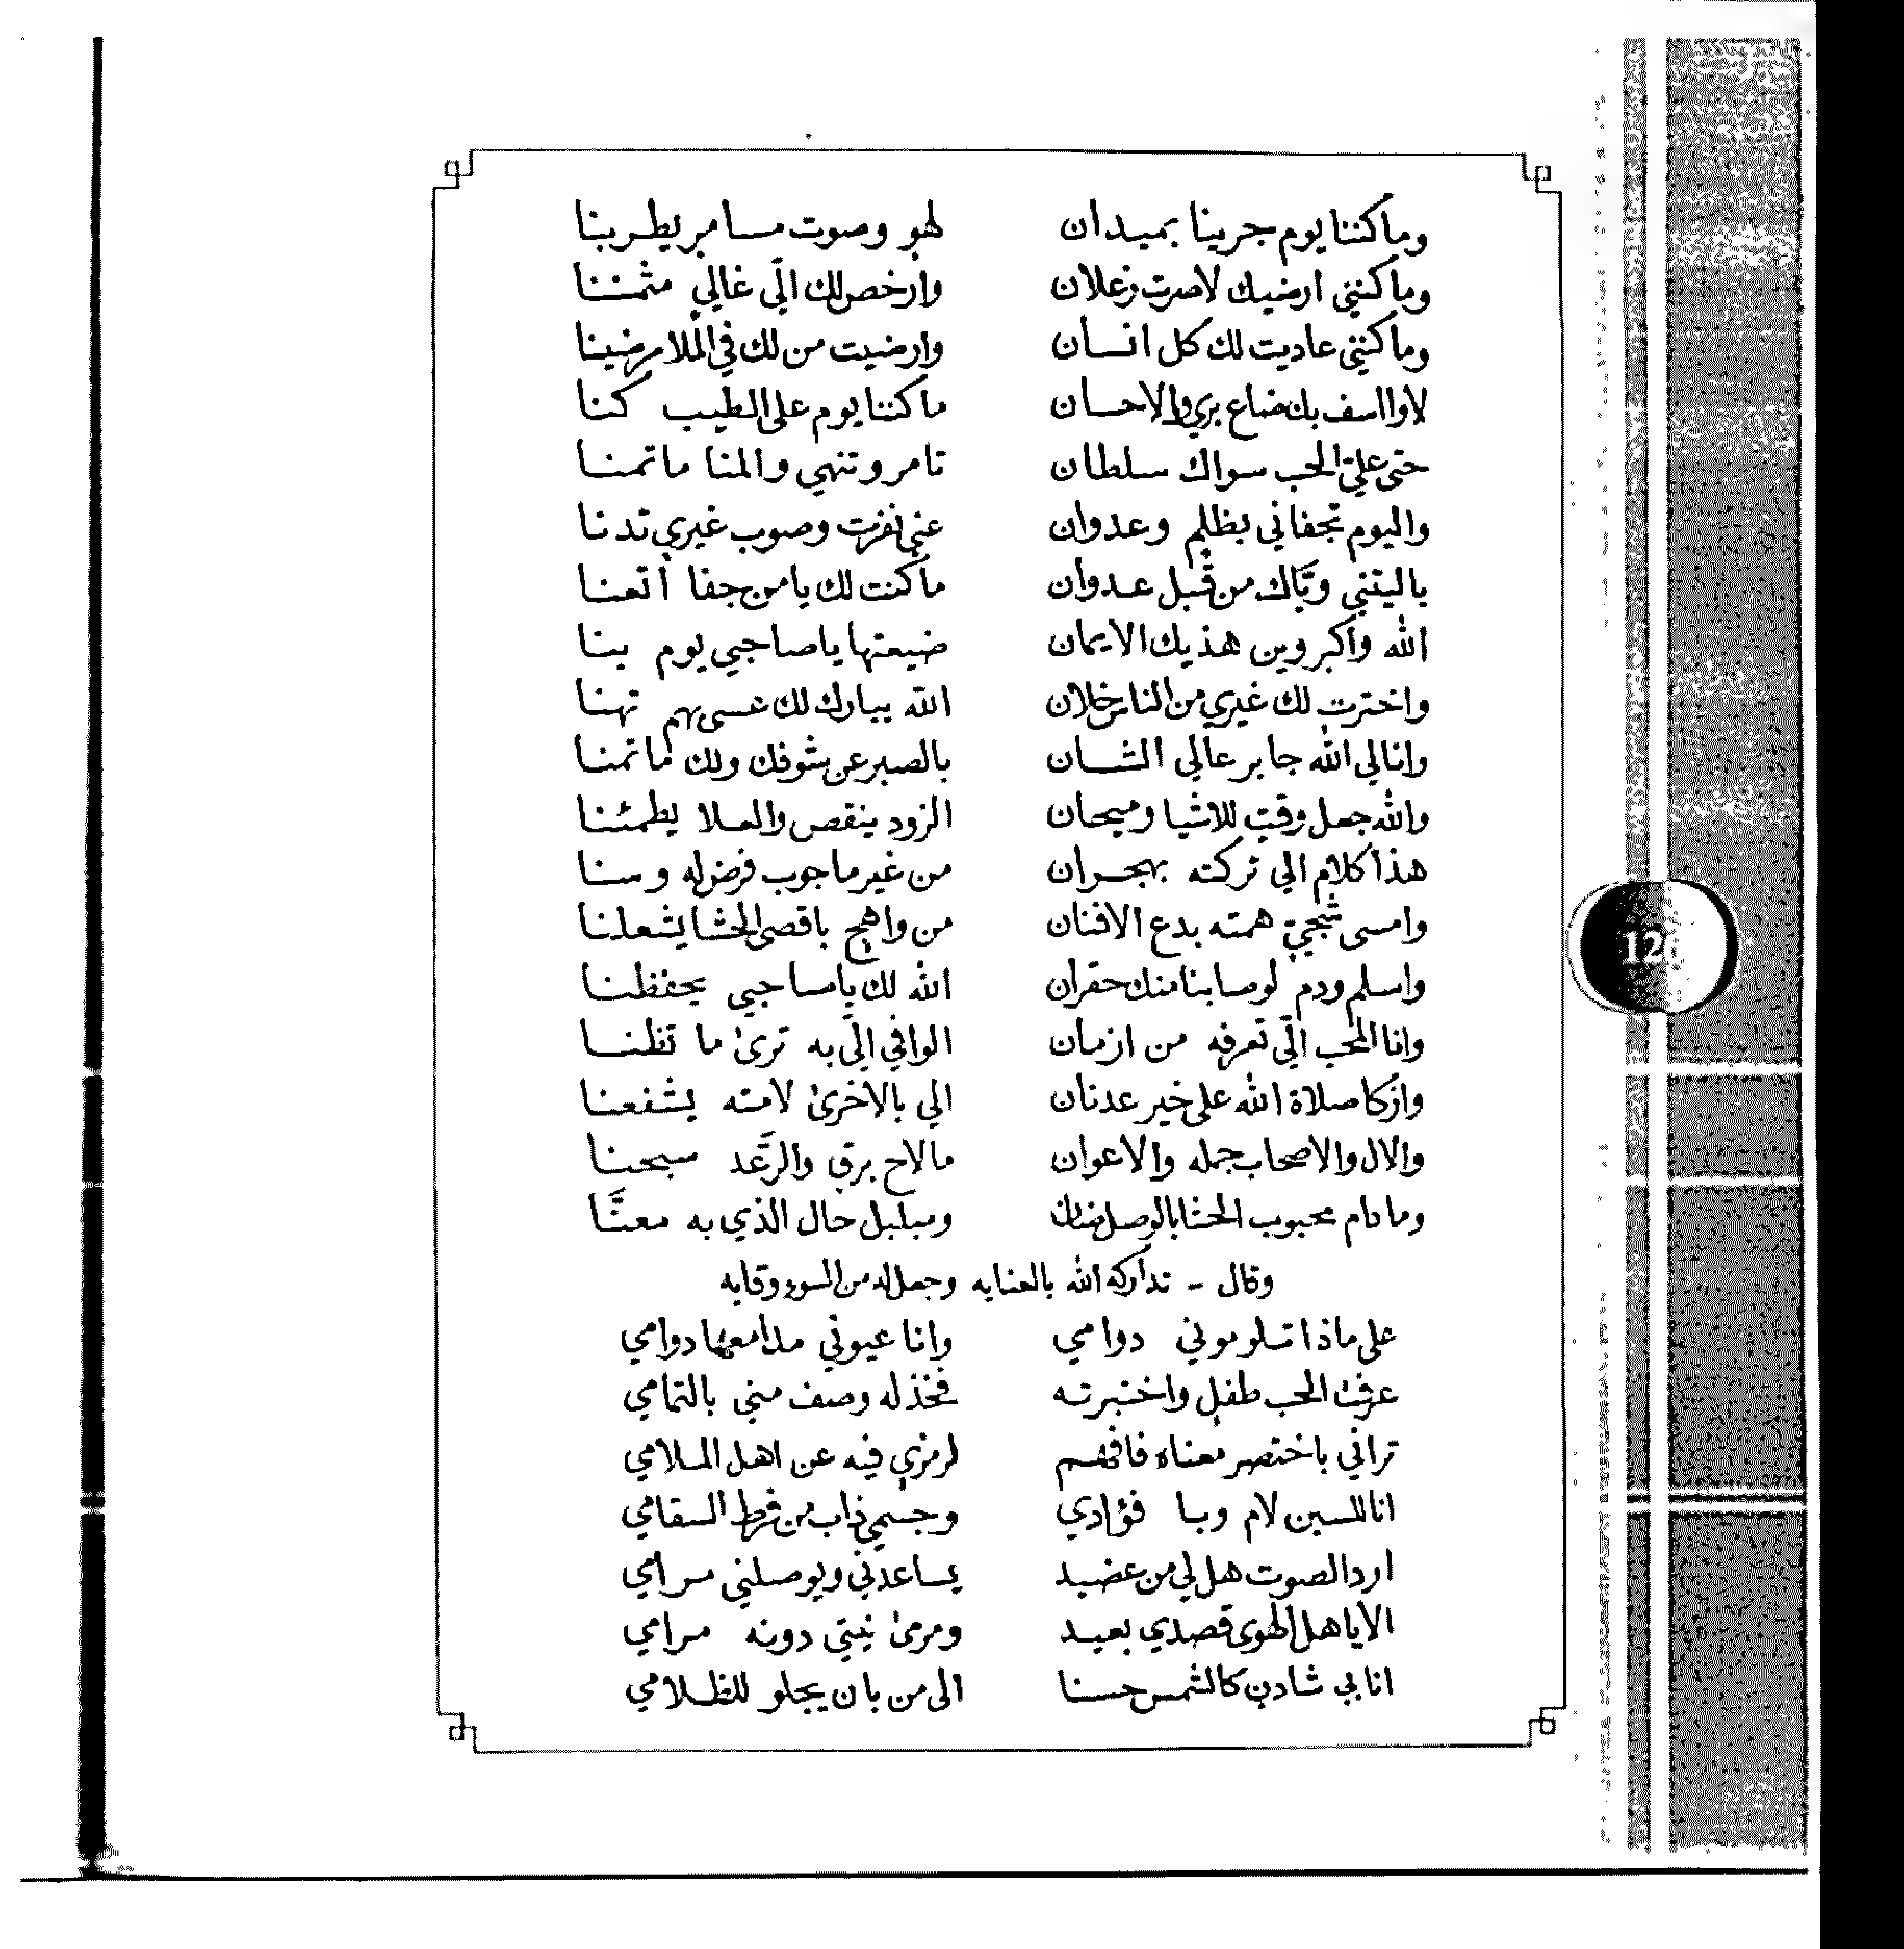 وما كننا يوم جرينا بميدان لهو وصوت مسامر يطربنا
وما كنني ارضيك لاصرت زعلان وارخص لك الّي غالي مثمننا
وما كنني عاديت لك كل انسان وارضيت من لك في الملا مرضينا
لاوا اسف بك ضاع بري والاحسان ما كننا يوم على الطيب كنا
حتى علي الحب سواك سلطان تامر وتنهي والمنا ما تمنا
واليوم تجفاني بظلم وعدوان عني نفرت وصوب غيري تدنا
ياليتني ويّاك من قبل عدوان ما كنت لك يا من جفا اتعنا
الله واكبر وين هذيك الايمان ضيعتها يا صاحبي يوم بنا
واخترت لك غيري من الناس خلان الله يبارك لك عسى بهم تهنا
وانا لي الله جابر عالي الشان بالصبر عن شوفك ولك ما تمنا
والله جعل وقت للاشيا وميحان الزود ينقص والعلا يطمئنا
هذا كلام الي تركته بهجران من غير ما جوب فرض له وسنا
وامسى شجي همته بدع الافنان من واهج باقصى الحشا يشعلنا
واسلم ودم لو صابنا منك حقران الله لك يا صاحبي يحفظنا
وانا المحب الّي تعرفه من ازمان الوافي الّي به ترى ما تظنا
وازكا صلاة الله على خير عدنان الي بالاخرى لامته يشفعنا
والال والاصحاب جمله والاعوان ما لاح برق والرّعد سبحنا
وما دام محبوب الحشا بالوصل ضنان ومبلبل حال الذي به معنّا
وقال - تداركه الله بالعنايه وجعل له من السوء وقايه
على ماذا تلوموني دوامي وانا عيوني مدامعها دوامي
عرفت الحب طفل واختبرته فخذ له وصف مني بالتمامي
تراني باختصر معناه فافهم لرمزي فيه عن اهل الملامي
انا للسين لام وبا فؤادي وجسمي ذاب من فرط السقامي
ارد الصوت هل لي من عضيد يساعدني ويوصلني مرامي
الا يا هل الهوى قصدي بعيد ومرمى نيتي دونه مرامي
انا بي شادن كالشمس حسنا الى من بان يجلو للظلامي